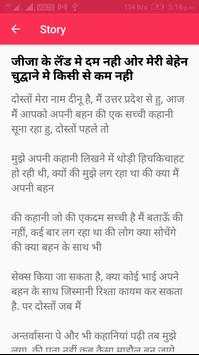 134 B/s 5:16 p.m.
Story
जीजा के लॅंड मे दम नही ओर मेरी बेहेन
चुद्वाने मे किसी से कम नही
दोस्तों मेरा नाम दीनू है, मैं उत्तर प्रदेश से हु, आज
मैं आपको अपनी बहन की एक सच्ची कहानी
सूना रहा हु, दोस्तों पहले तो
मुझे अपनी कहानी लिखने में थोड़ी हिचकिचाहट
हो रही थी, क्यों की मुझे लग रहा था की क्या मैं
अपनी बहन
की कहानी जो की एकदम सच्ची है मैं बताऊँ की
नहीं, कई बार लग रहा था की लोग क्या सोचेंगे
की क्या बहन के साथ भी
सेक्स किया जा सकता है, क्या कोई भाई अपने
बहन के साथ जिस्मानी रिश्ता कायम कर सकता
है. पर दोस्तों जब मैं
अन्तर्वासना पे और भी कहानियां पढ़ी तब मुझे